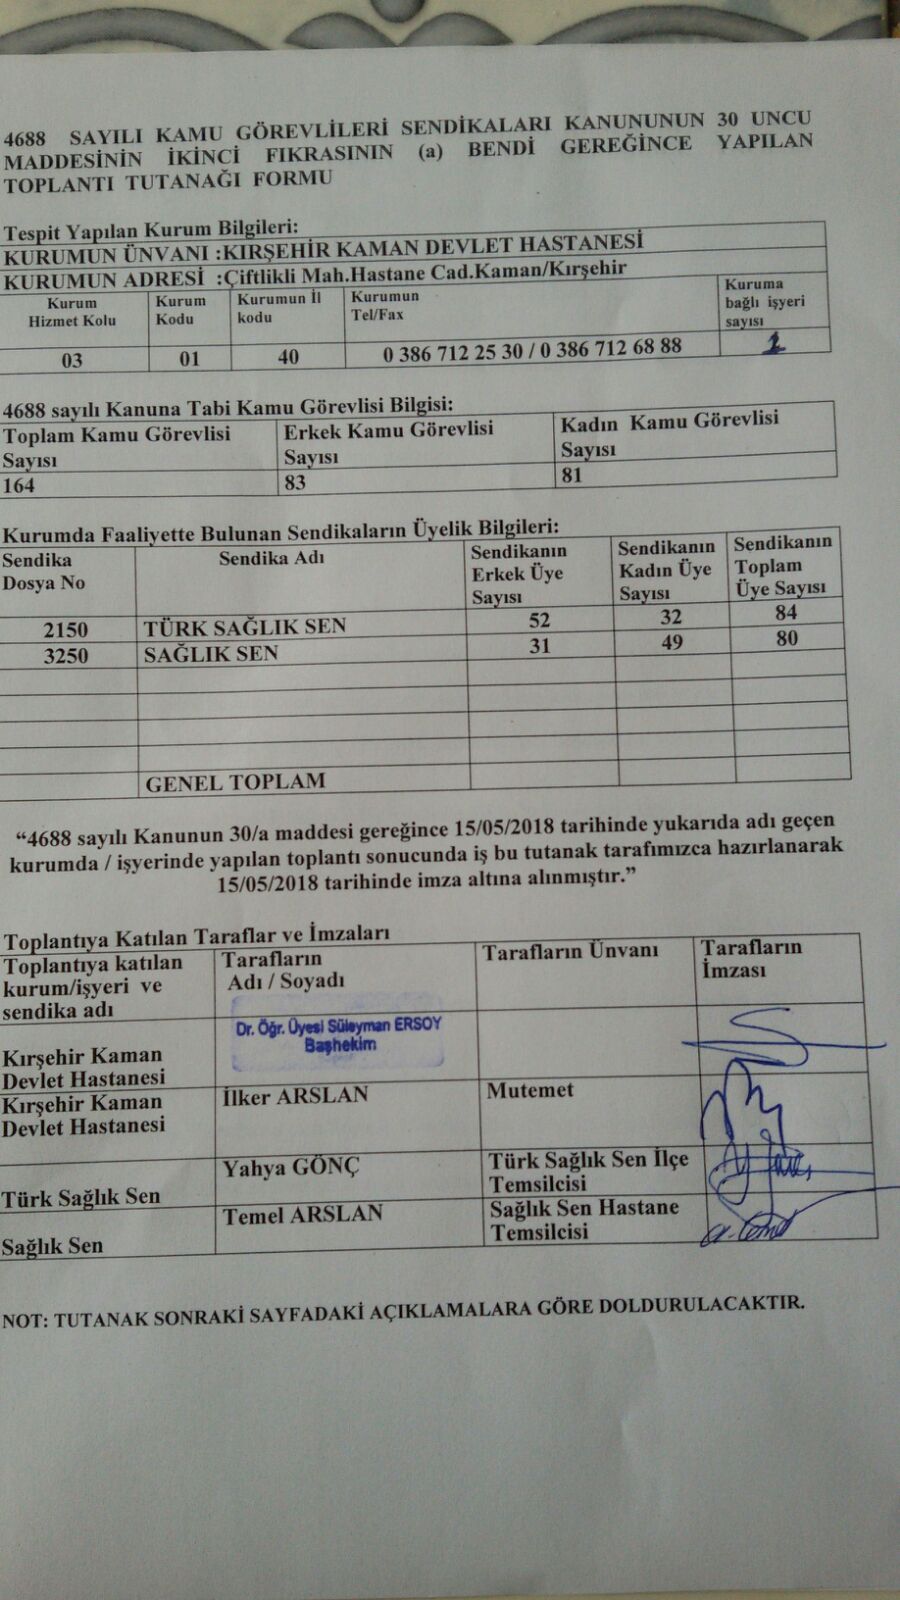 4688 SAYILI KAMU GÖREVLİLERİ SENDİKALARI KANUNUNUN 30 UNCU
MADDESİNİN İKİNCİ FIKRASININ (a) BENDİ GEREĞİNCE YAPILAN
TOPLANTI TUTANAĞI FORMU
Tespit Yapılan Kurum Bilgileri:
KURUMUN ÜNVANI :KIRŞEHİR KAMAN DEVLET HASTANESİ
KURUMUN ADRESİ :Çiftlikli Mah.Hastane Cad.Kaman/Kırşehir
Kurum Hizmet Kolu Kurum Kodu Kurumun İl kodu Kurumun Tel/Fax Kuruma bağlı işyeri sayısı
03 01 40 0 386 712 25 30 / 0 386 712 68 88 1
4688 sayılı Kanuna Tabi Kamu Görevlisi Bilgisi:
Toplam Kamu Görevlisi Sayısı Erkek Kamu Görevlisi Sayısı Kadın Kamu Görevlisi Sayısı
164 83 81
Kurumda Faaliyette Bulunan Sendikaların Üyelik Bilgileri:
Sendika Dosya No Sendika Adı Sendikanın Erkek Üye Sayısı Sendikanın Kadın Üye Sayısı Sendikanın Toplam Üye Sayısı
2150 TÜRK SAĞLIK SEN 52 32 84
3250 SAĞLIK SEN 31 49 80
GENEL TOPLAM
“4688 sayılı Kanunun 30/a maddesi gereğince 15/05/2018 tarihinde yukarıda adı geçen
kurumda / işyerinde yapılan toplantı sonucunda iş bu tutanak tarafımızca hazırlanarak
15/05/2018 tarihinde imza altına alınmıştır.”
Toplantıya Katılan Taraflar ve İmzaları
Toplantıya katılan kurum/işyeri ve sendika adı Tarafların Adı / Soyadı Tarafların Ünvanı Tarafların İmzası
Kırşehir Kaman Devlet Hastanesi Dr. Öğr. Üyesi Süleyman ERSOY Başhekim
Kırşehir Kaman Devlet Hastanesi İlker ARSLAN Mutemet
Türk Sağlık Sen Yahya GÖNÇ Türk Sağlık Sen İlçe Temsilcisi
Sağlık Sen Temel ARSLAN Sağlık Sen Hastane Temsilcisi
NOT: TUTANAK SONRAKİ SAYFADAKİ AÇIKLAMALARA GÖRE DOLDURULACAKTIR.